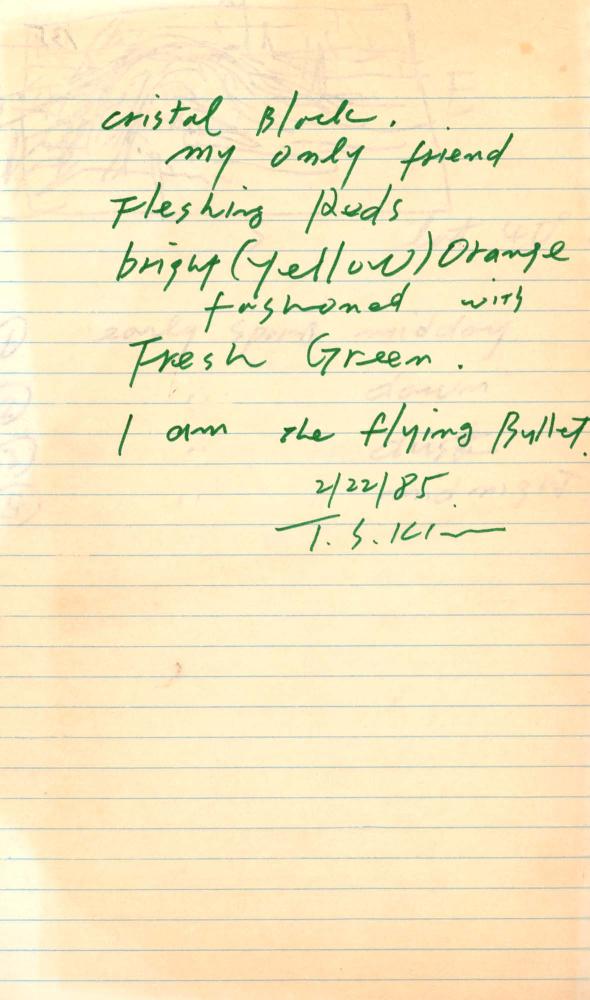 cristal Black.
my only friend
Fleshing Reds
bright (yellow) Orange
fashoned with
Fresh Green.
I am the flying Bullet.
2/22/85
T. S. Kim